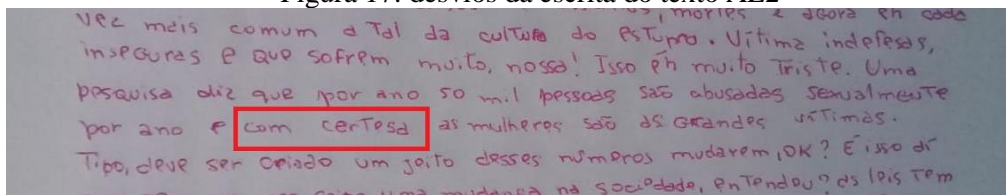 Figura 17: desvios da escrita do texto AE2
vez mais comum a Tal da cultura do esTupro. Vítima indefesas,
inseguras e que sofrem muito, nossa! Isso éh muito Triste. Uma
pesquisa diz que por ano 50 mil pessoas são abusadas sexualmente
por ano e com certesa as mulheres são as Grandes vítimas.
Tipo, deve ser criado um jeito desses números mudarem, OK? E isso aí
uma mudança na sociedade, entendeu? as leis Tem